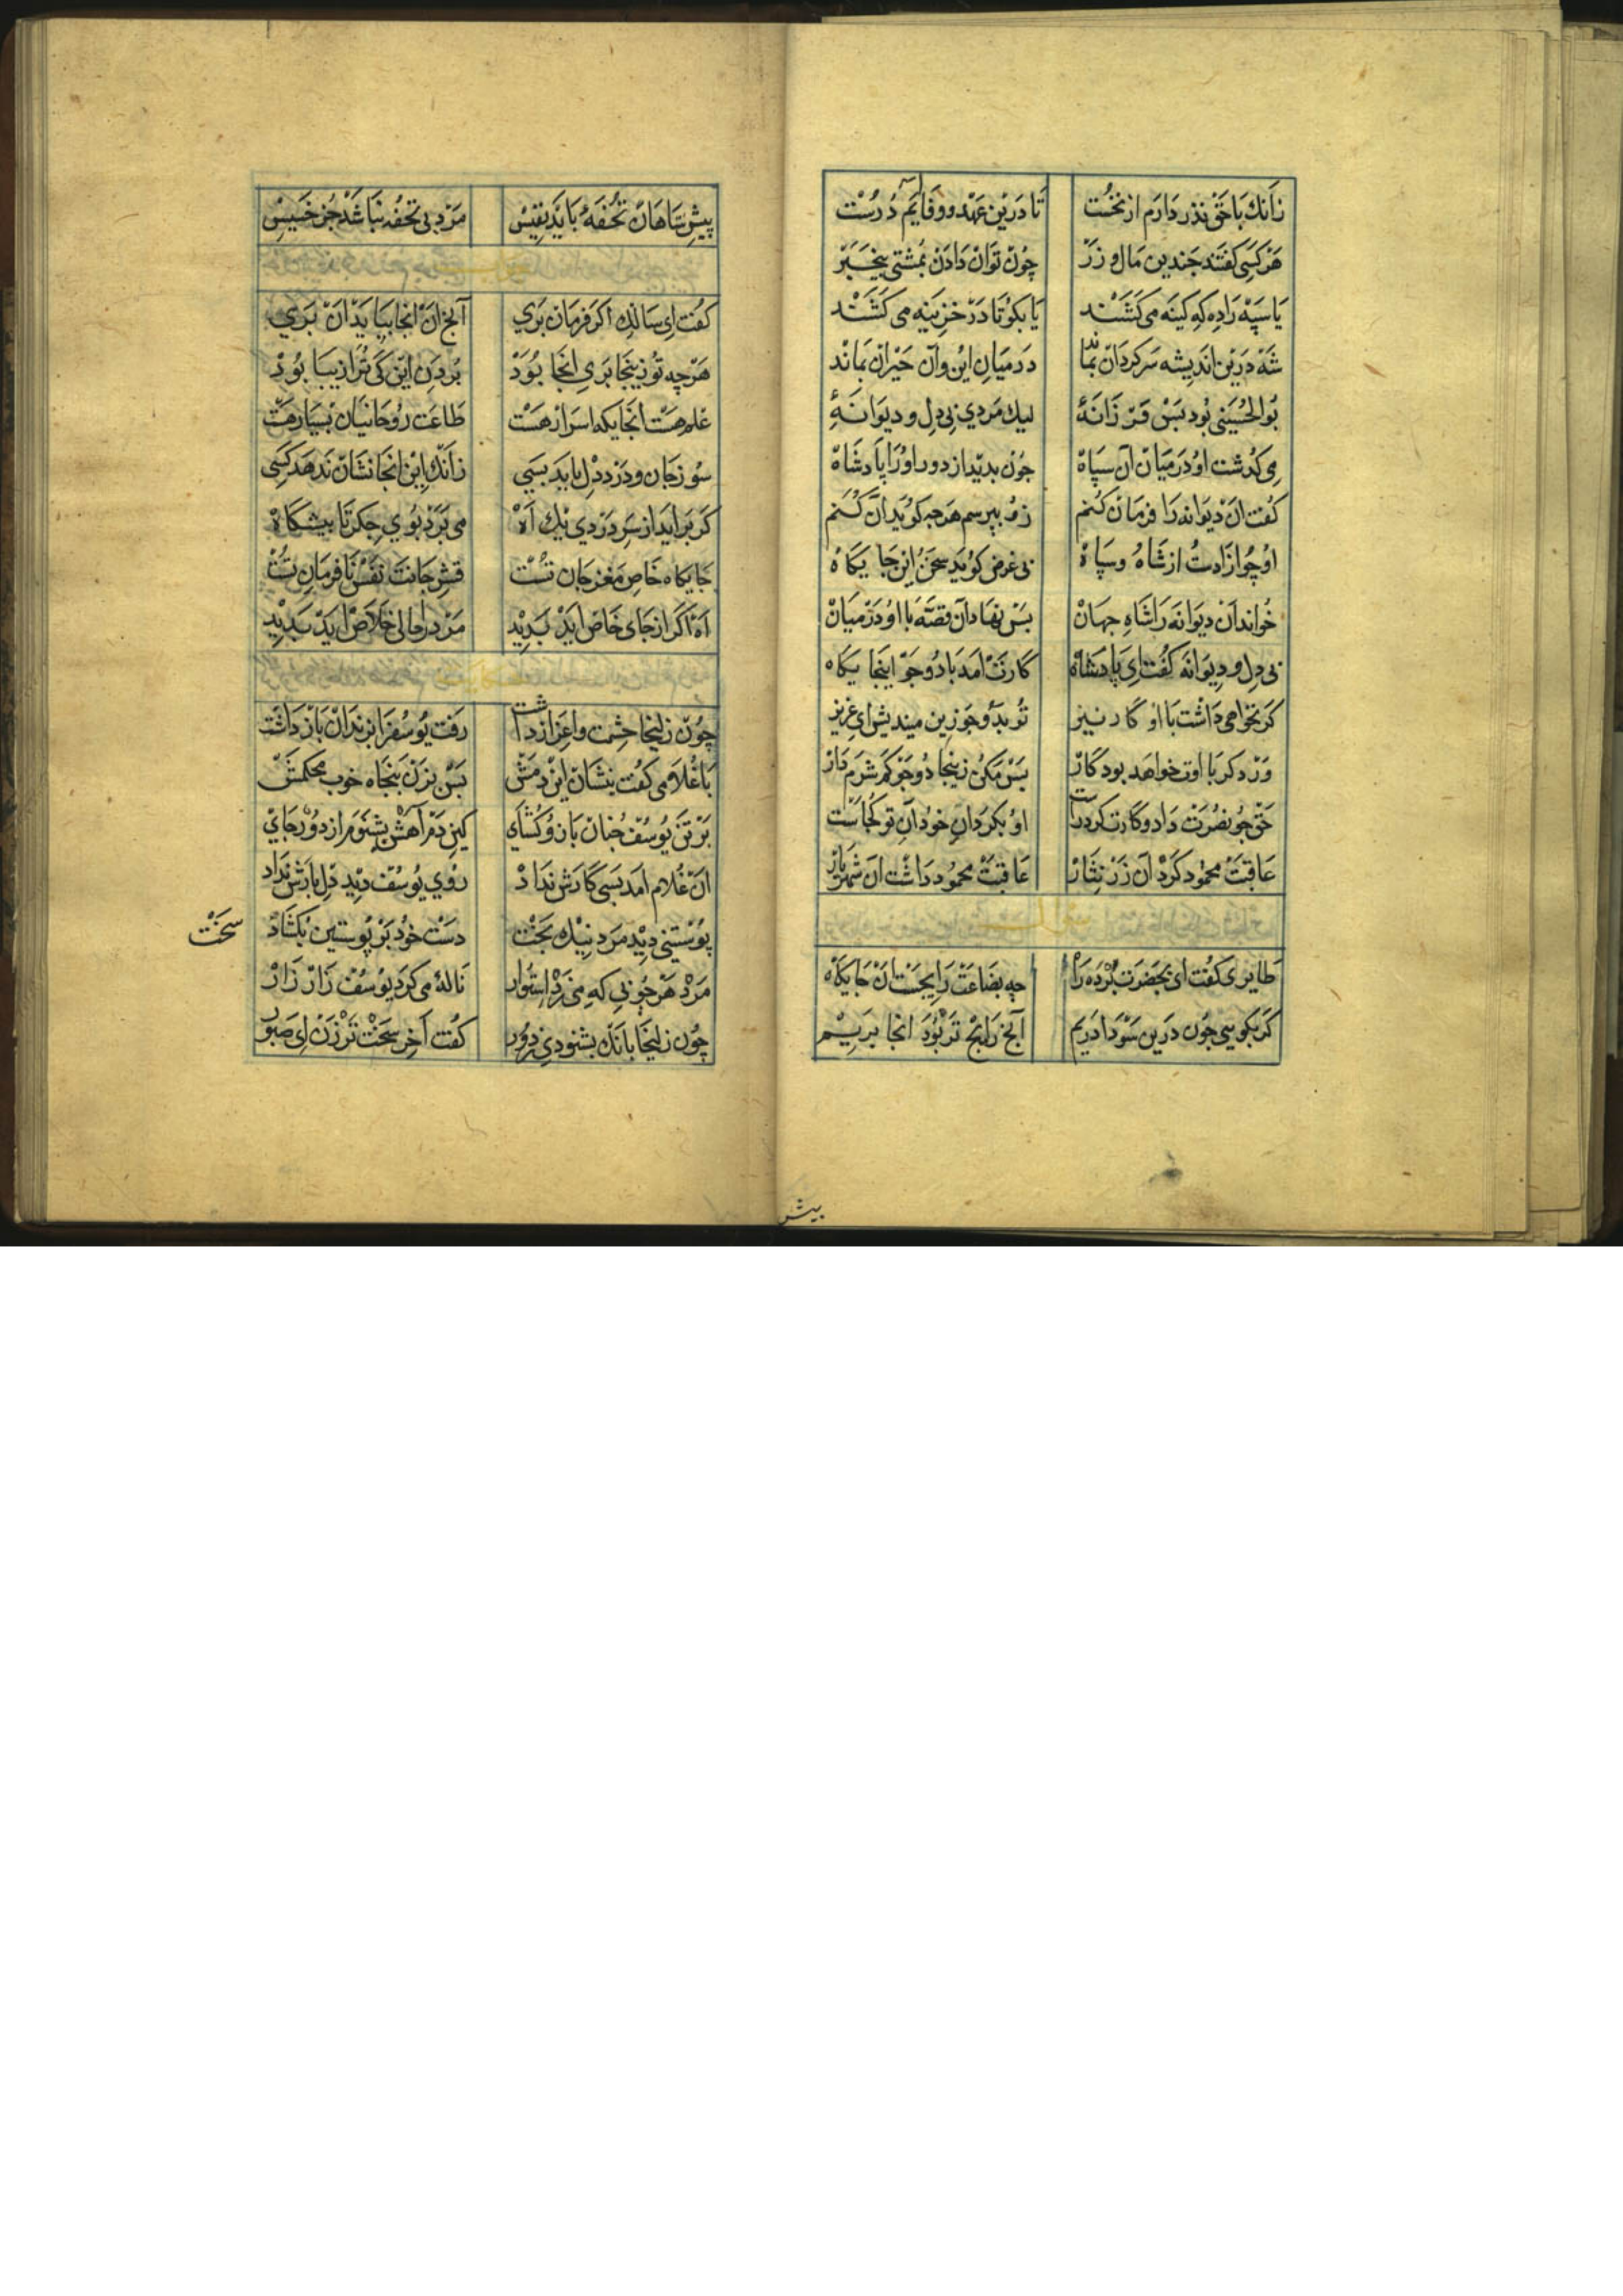 زانك با حق نذر دارم از نخست تا درین عهد و وفا آیم درست
هر کسی گفتند چندین مال و زر چون توان دادن بمشتی بیخبر
یا سپه را ده که کینه می کشند یا بکو تا در خزینه می کشند
شه درین اندیشه سرکردان بماند در میان این و آن حیران بماند
بوالحسینی بود بس فرزانهٔ لیك مردی بی دل و دیوانهٔ
می کذشت او در میان آن سپاه چون بدید از دور او را پادشاه
کفت آن دیوانه را فرمان کنم زو بپرسم هرچه کوید آن کنم
او چو آزادست از شاه و سپاه بی غرض کوید سخن این جایکاه
خواند آن دیوانه را شاه جهان بس نهاد آن قصه با او در میان
بی دل و دیوانه کفت ای پادشاه کارت آمد با دو جو اینجایکاه
کر نخواهی داشت با او کار نیز تو بدو جو زین میندیش ای عزیز
ور دکر با اوت خواهد بود کار بس مکن زینجا دو جو کم شرم دار
حق چو نصرت داد و کارت کرد راست او بکرد آن خود آن تو کجاست
عاقبت محمود کرد آن زر نثار عاقبت محمود داشت آن شهریار
طایری کفت ای بحضرت برده راه چه بضاعت رایجست آن جایکاه
کر بکویی چون درین سودا دریم آنچ رایج تر بود آنجا بریم
بیش
پیش شاهان تحفهٔ باید نفیس مرد بی تحفه نباشد جز خسیس
کفت ای سائل اکر فرمان بری آنچ آن آنجا بیاید آن بری
هرچه تو زینجا بری آنجا بود بردن این کی ترا زیبا بود
علم هست آنجایکه اسرار هست طاعت روحانیان بسیار هست
سوز جان و درد دل باید بسی زانك این آنجا نشان ندهد کسی
کر براید از سر دردی یك آه می برد بوی جکر تا پیشکاه
جایکاه خاص مغز جان تست قشر جانت نفس نافرمان تست
آه اکر از جای خاص آید پدید مرد را حالی خلاص آید پدید
چون زلیخا حشمت و اعزاز داشت رفت یوسف را بزندان باز داشت
با غلامی کفت بنشان این دمش بس بزن پنجاه خوب محکمش
بر تن یوسف چنان بازو کشای کین دم آهش بشنوم از دور جای
آن غلام آمد بسی کارش نداد روی یوسف دید دل بارش نداد
پوستینی دید مرد نیك بخت دست خود بر پوستین بکشاد
سخت
مرد هر چوبی که می زد استوار نالهٔ می کرد یوسف زار زار
چون زلیخا بانك بشنودی ز دور کفت آخر سخت تر زن ای صبور